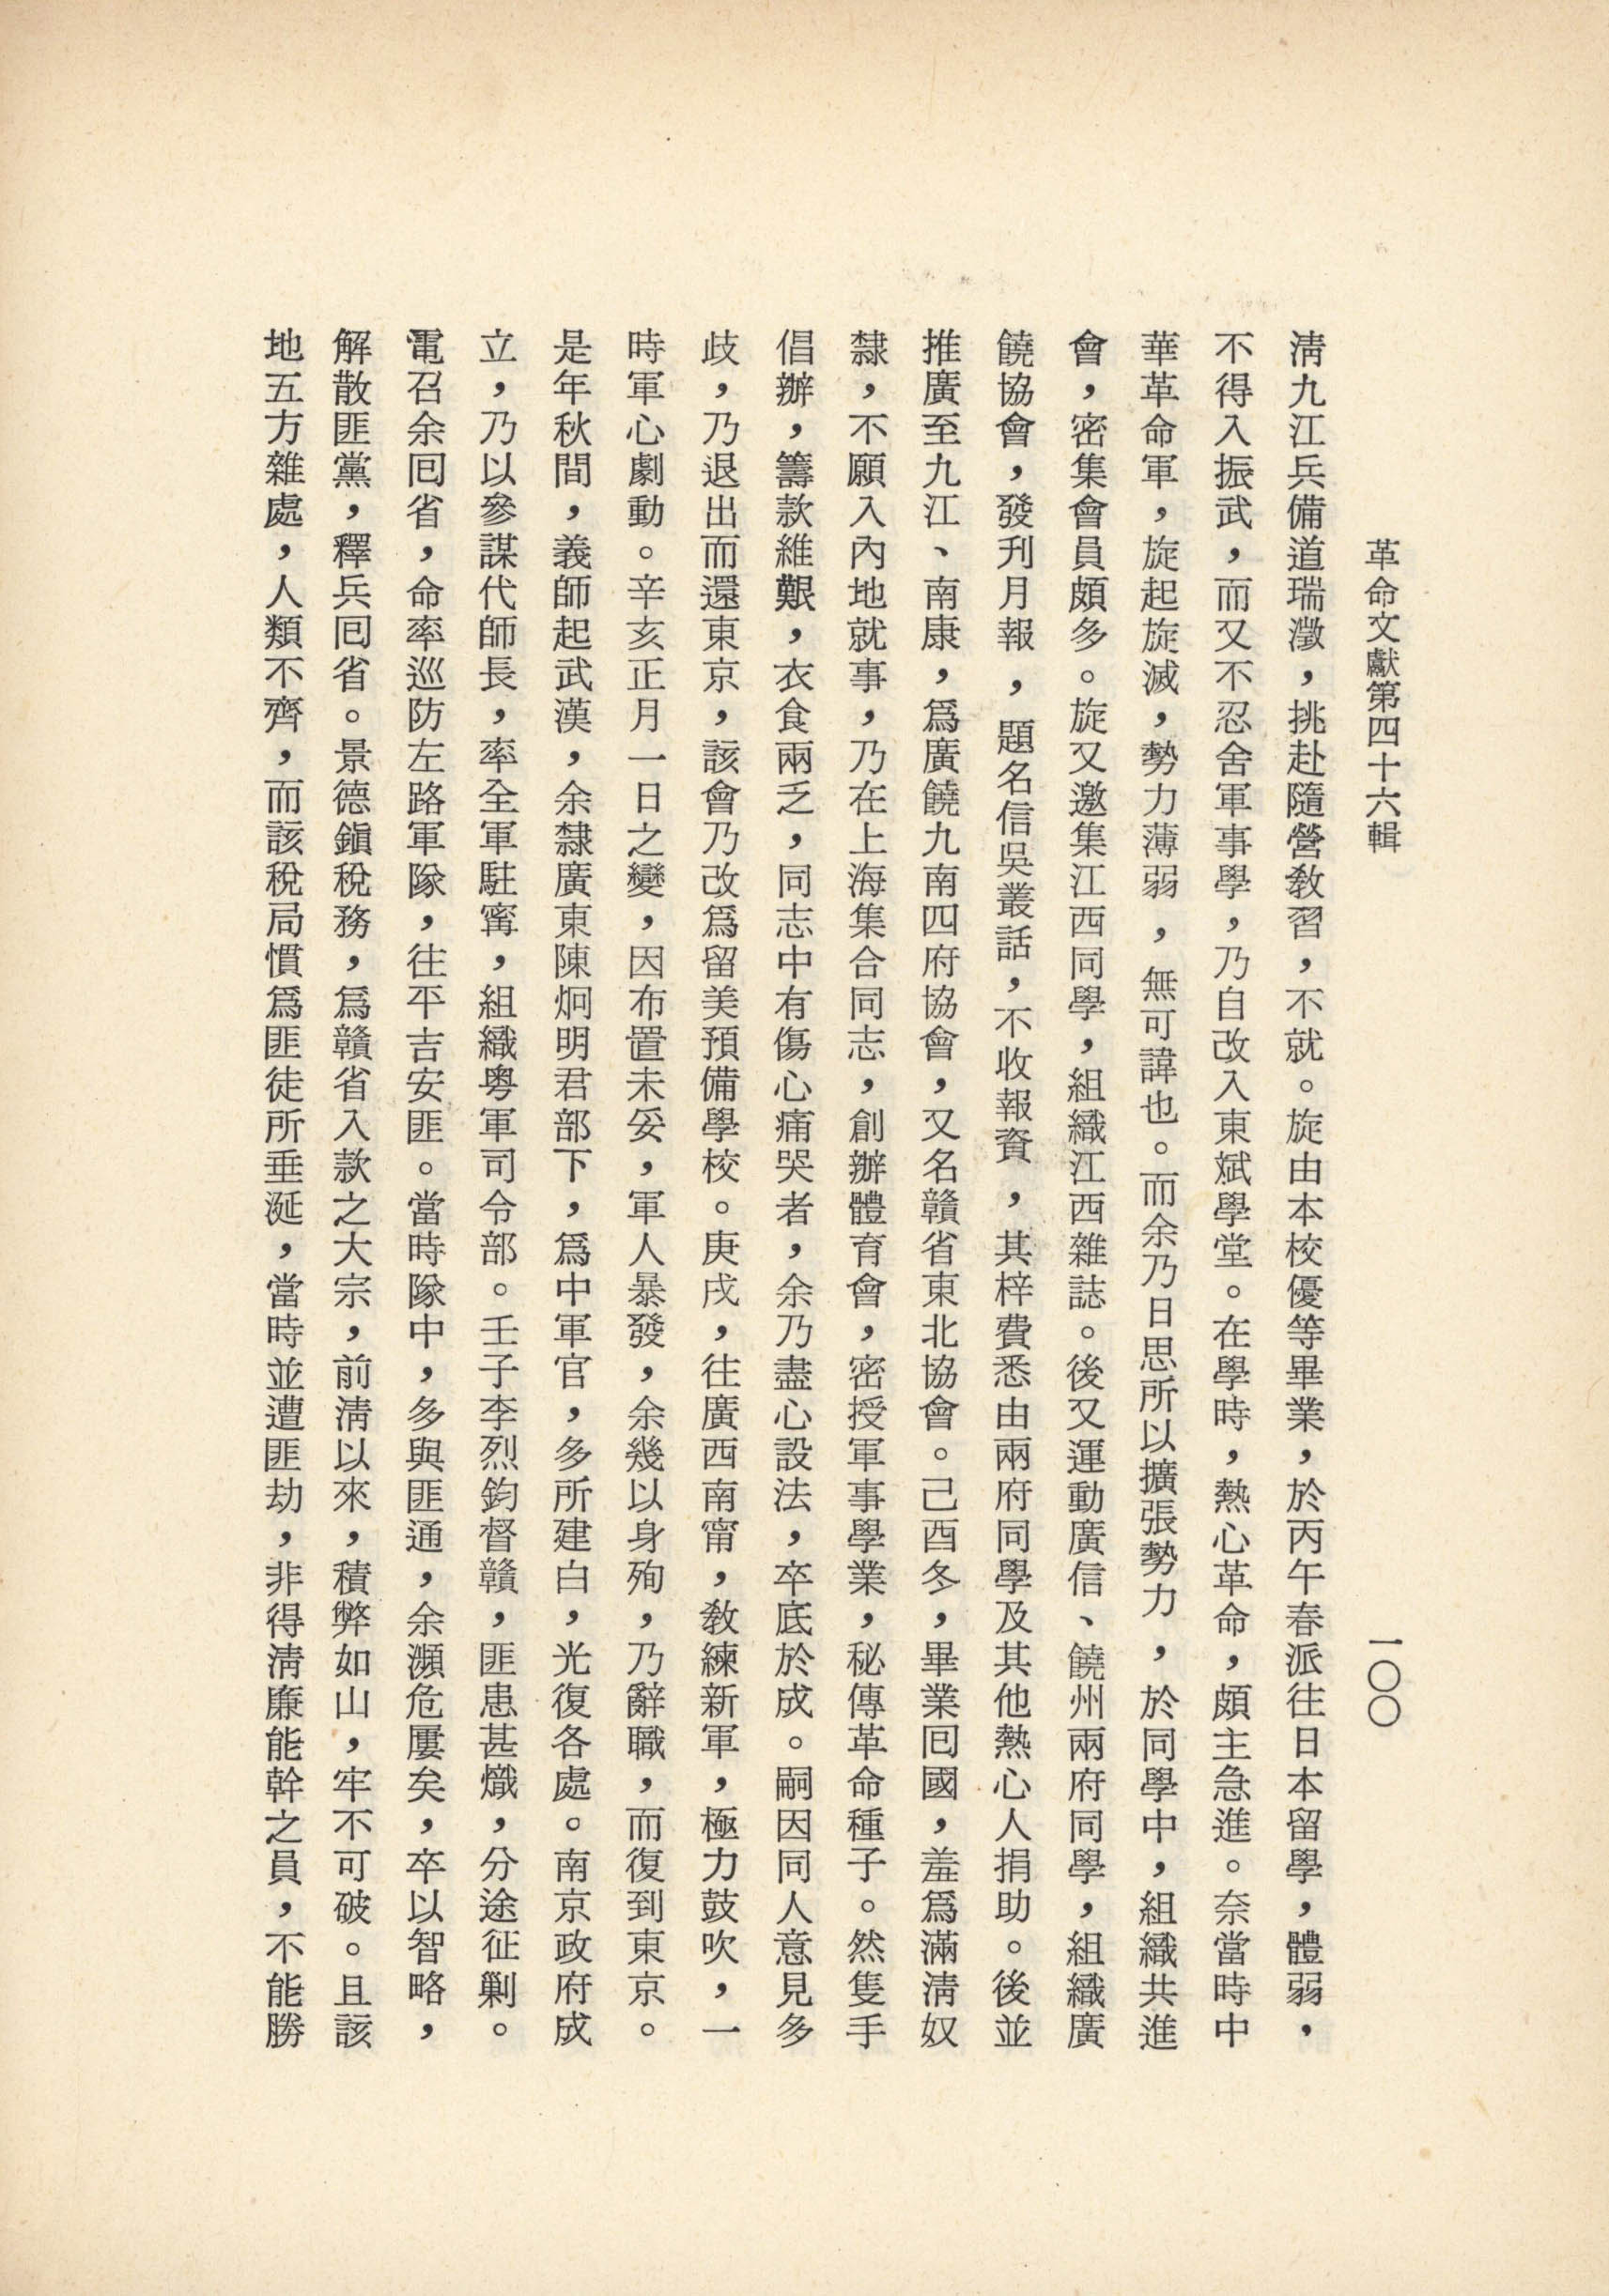 革命文獻第四十六輯
一〇〇
清九江兵備道瑞澂，挑赴隨營教習，不就。旋由本校優等畢業，於丙午春派往日本留學，體弱，
不得入振武，而又不忍舍軍事學，乃自改入東斌學堂。在學時，熱心革命，頗主急進。奈當時中
華革命軍，旋起旋滅，勢力薄弱，無可諱也。而余乃日思所以擴張勢力，於同學中，組織共進
會，密集會員頗多。旋又邀集江西同學，組織江西雜誌。後又運動廣信、饒州兩府同學，組織廣
饒協會，發刊月報，題名信吳叢話，不收報資，其梓費悉由兩府同學及其他熱心人捐助。後並
推廣至九江、南康，爲廣饒九南四府協會，又名贛省東北協會。己酉冬，畢業囘國，羞爲滿清奴
隸，不願入內地就事，乃在上海集合同志，創辦體育會，密授軍事學業，秘傳革命種子。然隻手
倡辦，籌款維艱，衣食兩乏，同志中有傷心痛哭者，余乃盡心設法，卒底於成。嗣因同人意見多
歧，乃退出而還東京，該會乃改爲留美預備學校。庚戌，往廣西南甯，教練新軍，極力鼓吹，一
時軍心劇動。辛亥正月一日之變，因布置未妥，軍人暴發，余幾以身殉，乃辭職，而復到東京。
是年秋間，義師起武漢，余隸廣東陳炯明君部下，爲中軍官，多所建白，光復各處。南京政府成
立，乃以參謀代師長，率全軍駐寗，組織粤軍司令部。壬子李烈鈞督贛，匪患甚熾，分途征剿。
電召余囘省，命率巡防左路軍隊，往平吉安匪。當時隊中，多與匪通，余瀕危屢矣，卒以智略，
解散匪黨，釋兵囘省。景德鎭稅務，爲贛省入款之大宗，前清以來，積弊如山，牢不可破。且該
地五方雜處，人類不齊，而該稅局慣爲匪徒所垂涎，當時並遭匪劫，非得清廉能幹之員，不能勝